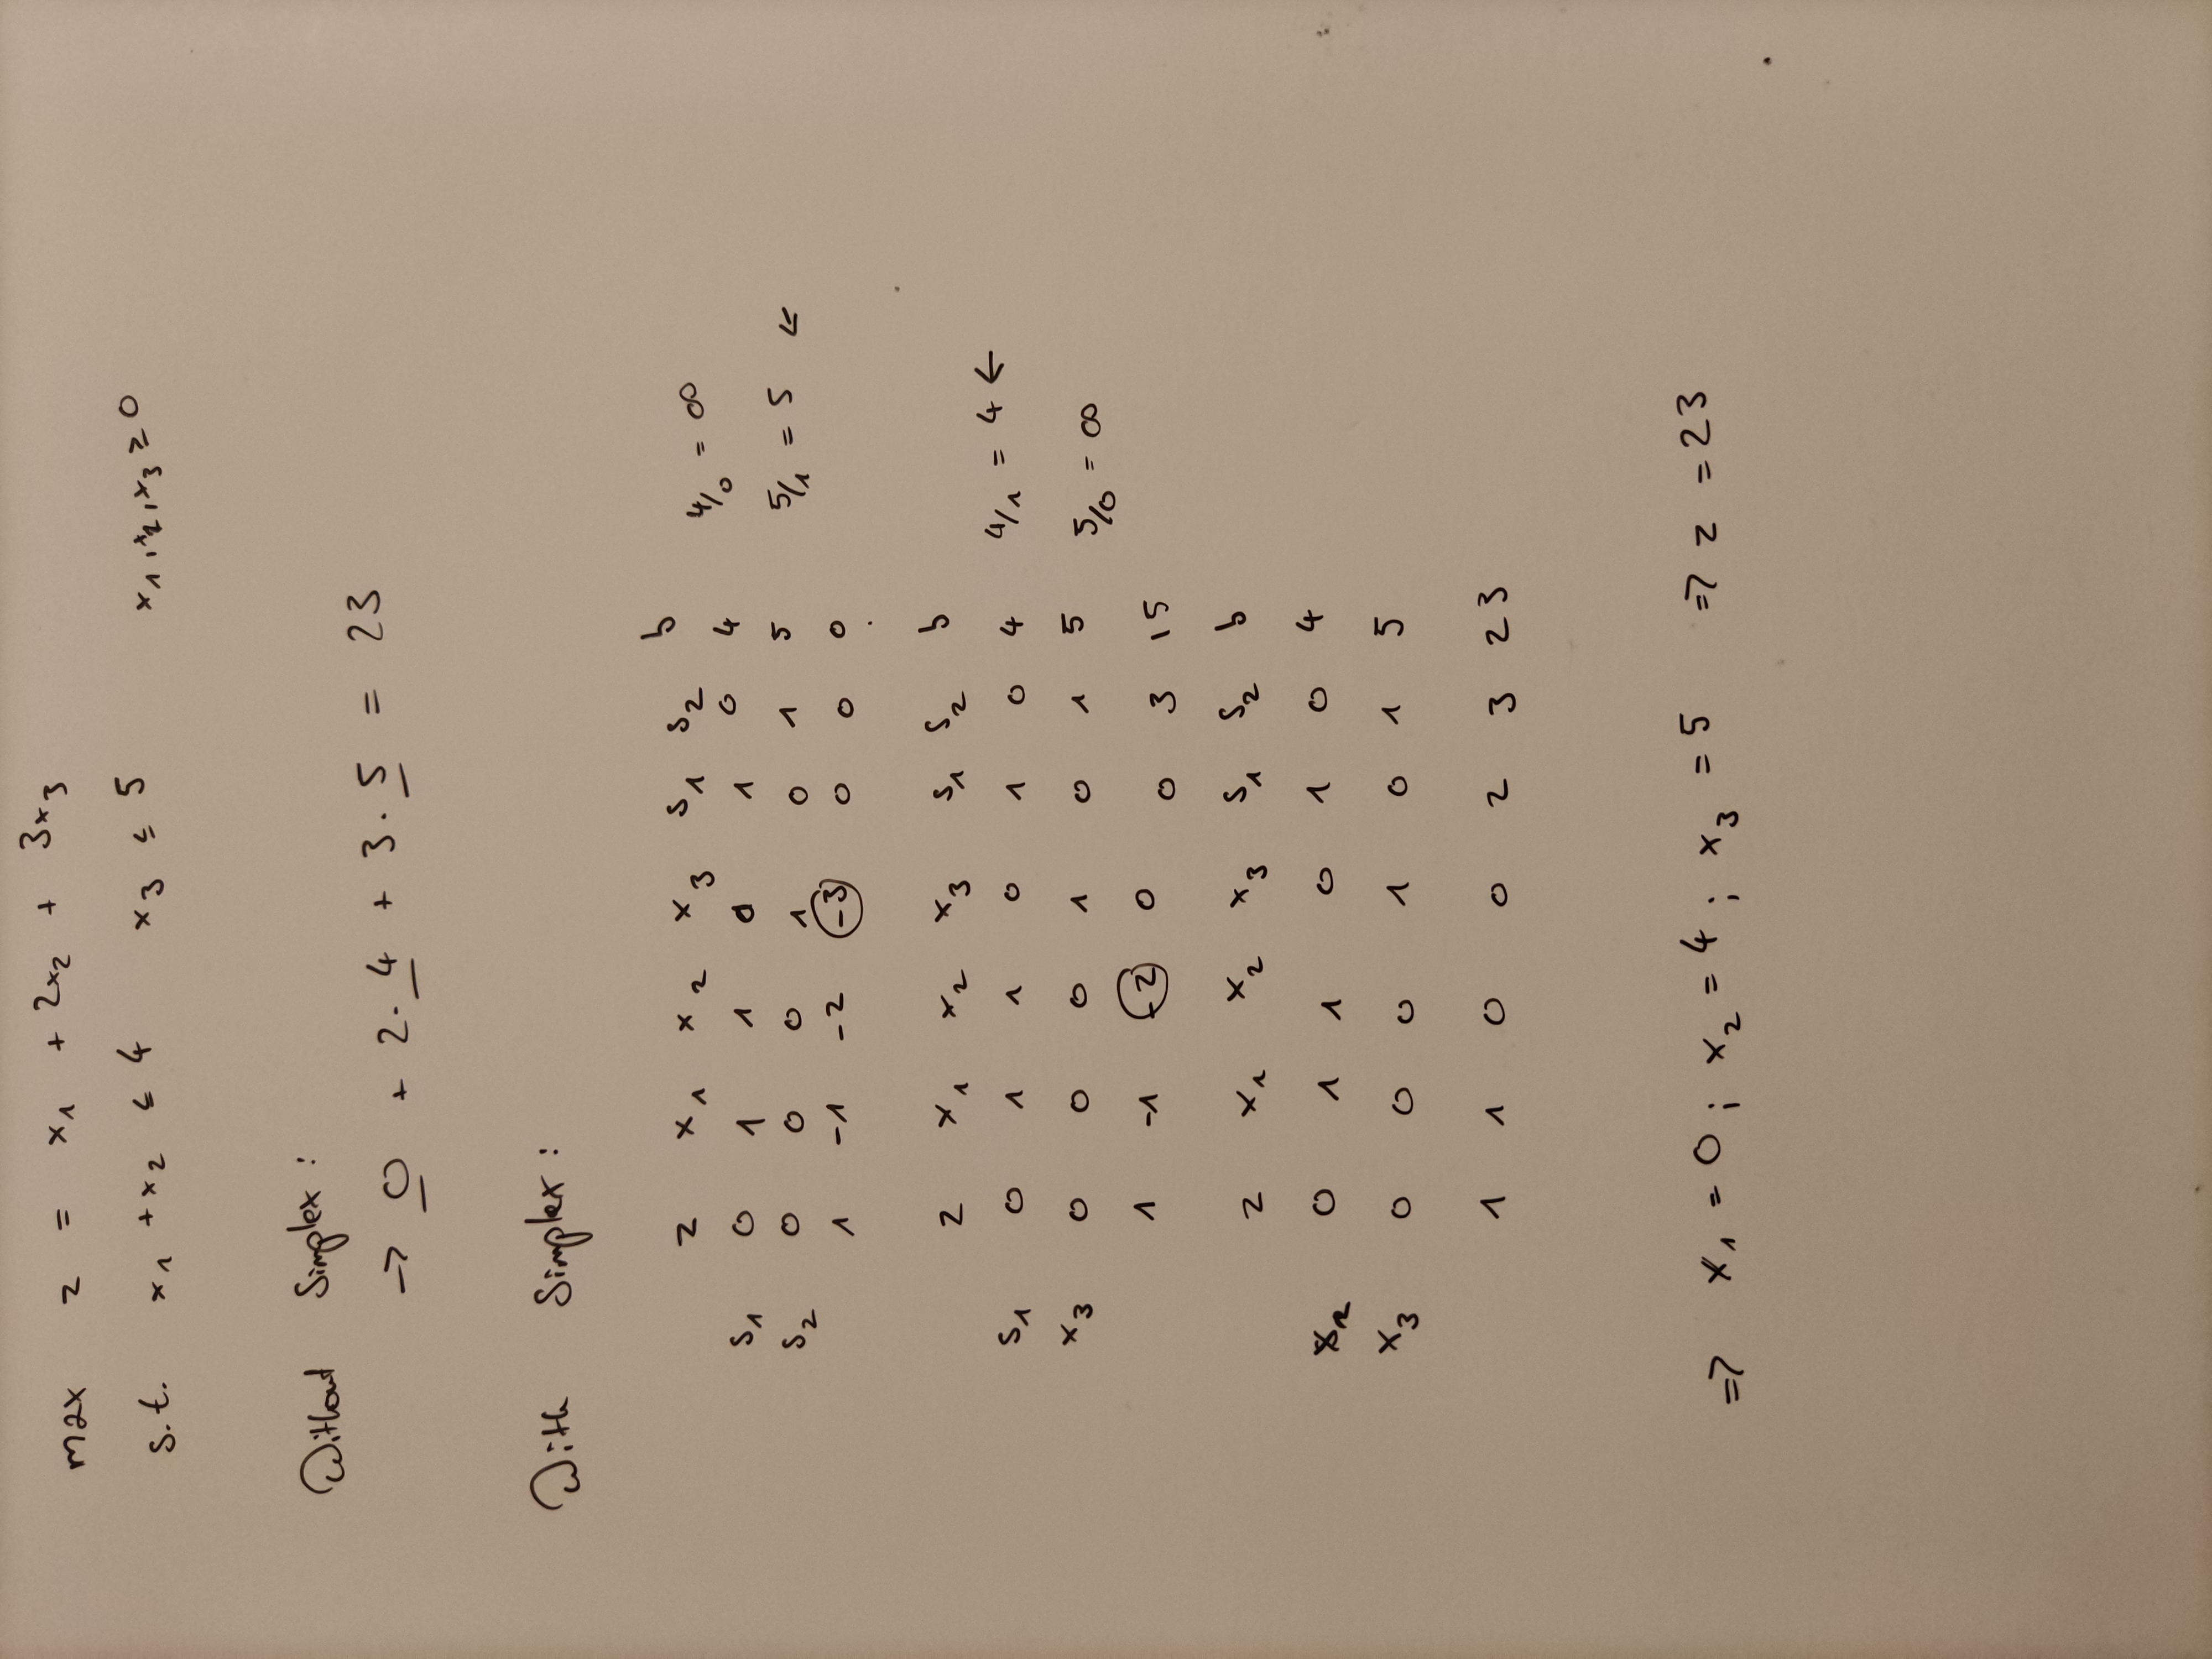 max z = x₁ + 2x₂ + 3x₃
s.t. x₁ + x₂ ≤ 4 x₃ ≤ 5 x₁, x₂, x₃ ≥ 0
Without Simplex:
→ 0 + 2·4 + 3·5 = 23
With Simplex:
z x₁ x₂ x₃ s₁ s₂ b
s₁ 0 1 1 0 1 0 4 4/0 = ∞
s₂ 0 0 0 1 0 1 5 5/1 = 5 ←
1 -1 -2 -3 0 0 0
z x₁ x₂ x₃ s₁ s₂ b
s₁ 0 1 1 0 1 0 4 4/1 = 4 ←
x₃ 0 0 0 1 0 1 5 5/0 = ∞
1 -1 -2 0 0 3 15
z x₁ x₂ x₃ s₁ s₂ b
x₂ 0 1 1 0 1 0 4
x₃ 0 0 0 1 0 1 5
1 1 0 0 2 3 23
⇒ x₁ = 0; x₂ = 4; x₃ = 5 ⇒ z = 23